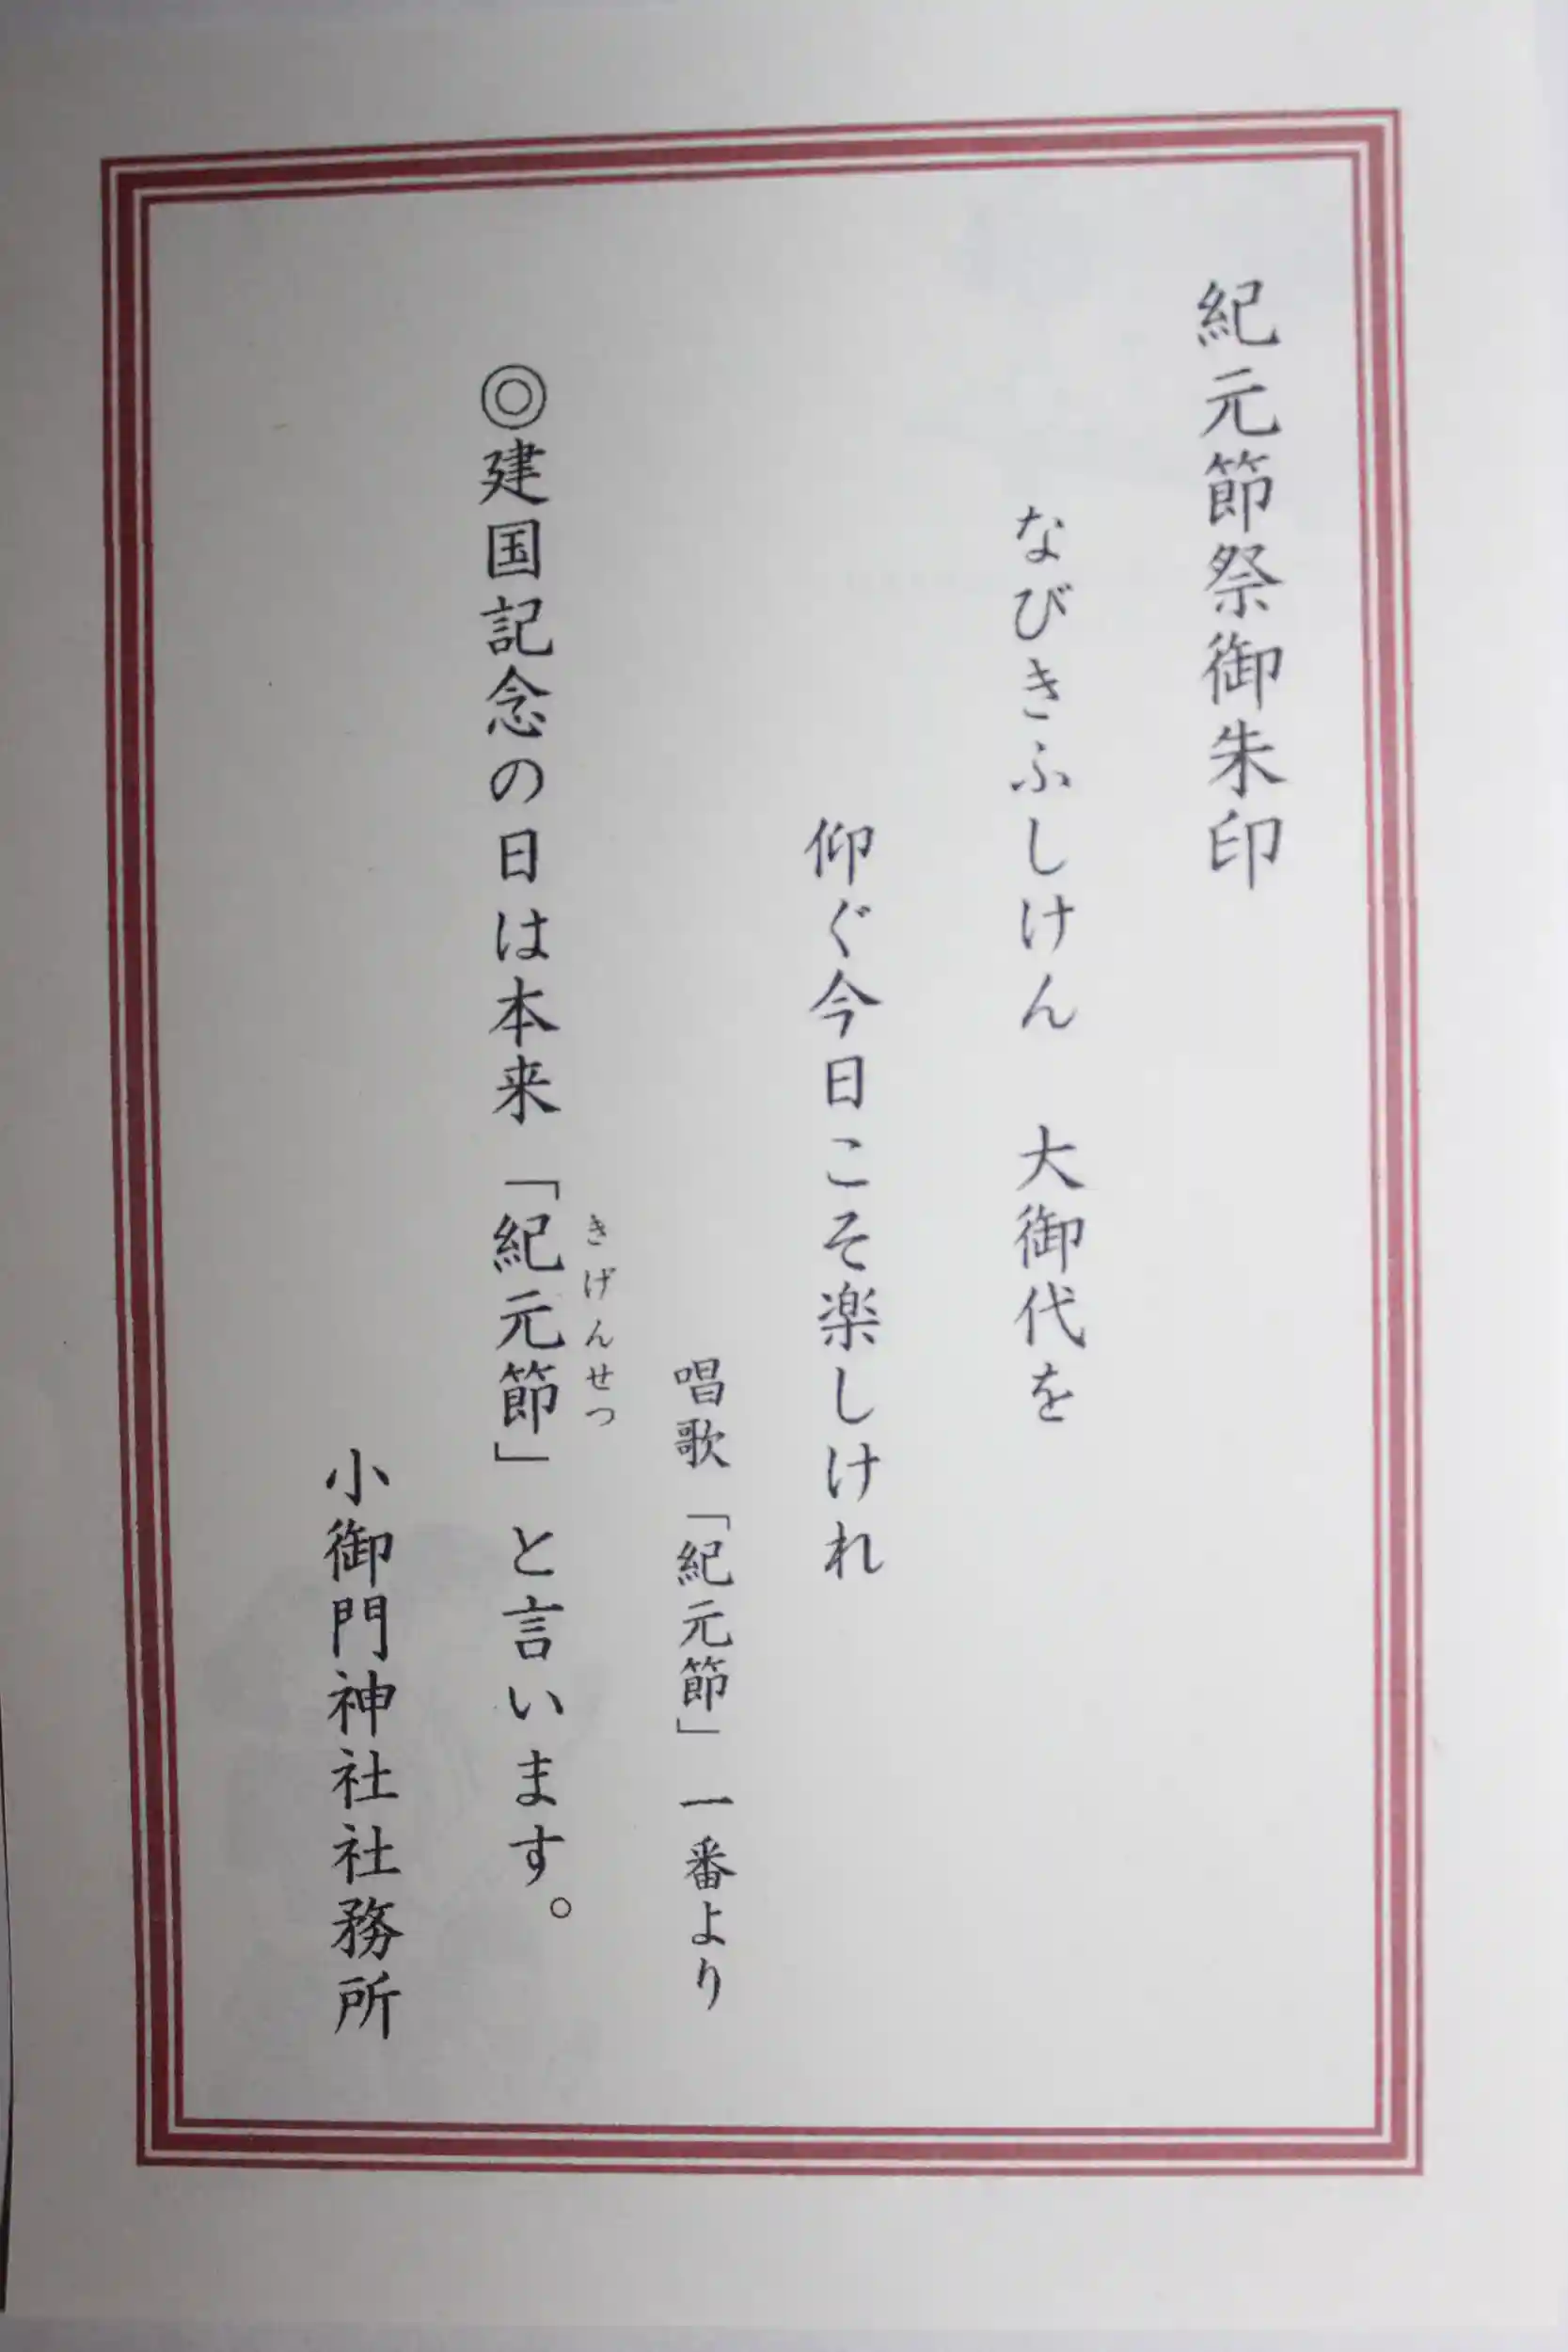 紀元節祭御朱印
なびきふしけん　大御代を
仰ぐ今日こそ楽しけれ
唱歌「紀元節」一番より
きげんせつ
◎建国記念の日は本来「紀元節」と言います。
小御門神社社務所